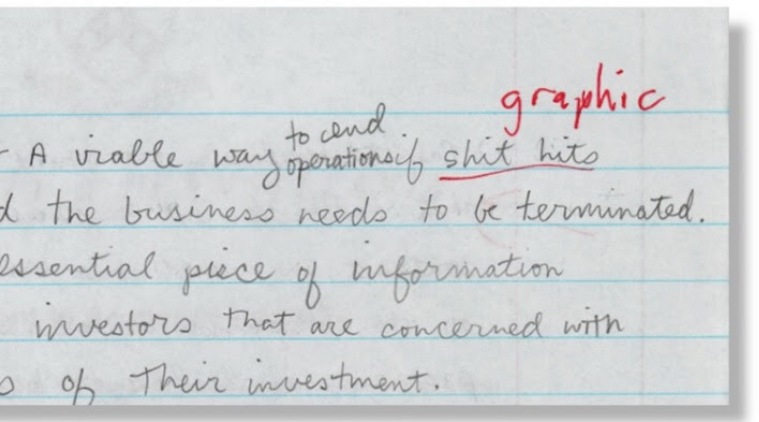 graphic
to end
- A viable way operations if shit hits
d the business needs to be terminated.
essential piece of information
investors that are concerned with
s of their investment.